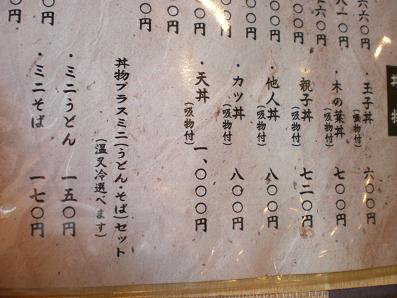 丼物
・玉子丼(吸物付) 六〇〇円
・木の葉丼(吸物付) 七〇〇円
・親子丼(吸物付) 七二〇円
・他人丼(吸物付) 八〇〇円
・カツ丼(吸物付) 八〇〇円
・天丼(吸物付) 一、〇〇〇円
丼物プラスミニ(うどん・そば)セット
(温又冷選べます)
・ミニうどん 一五〇円
・ミニそば 一七〇円